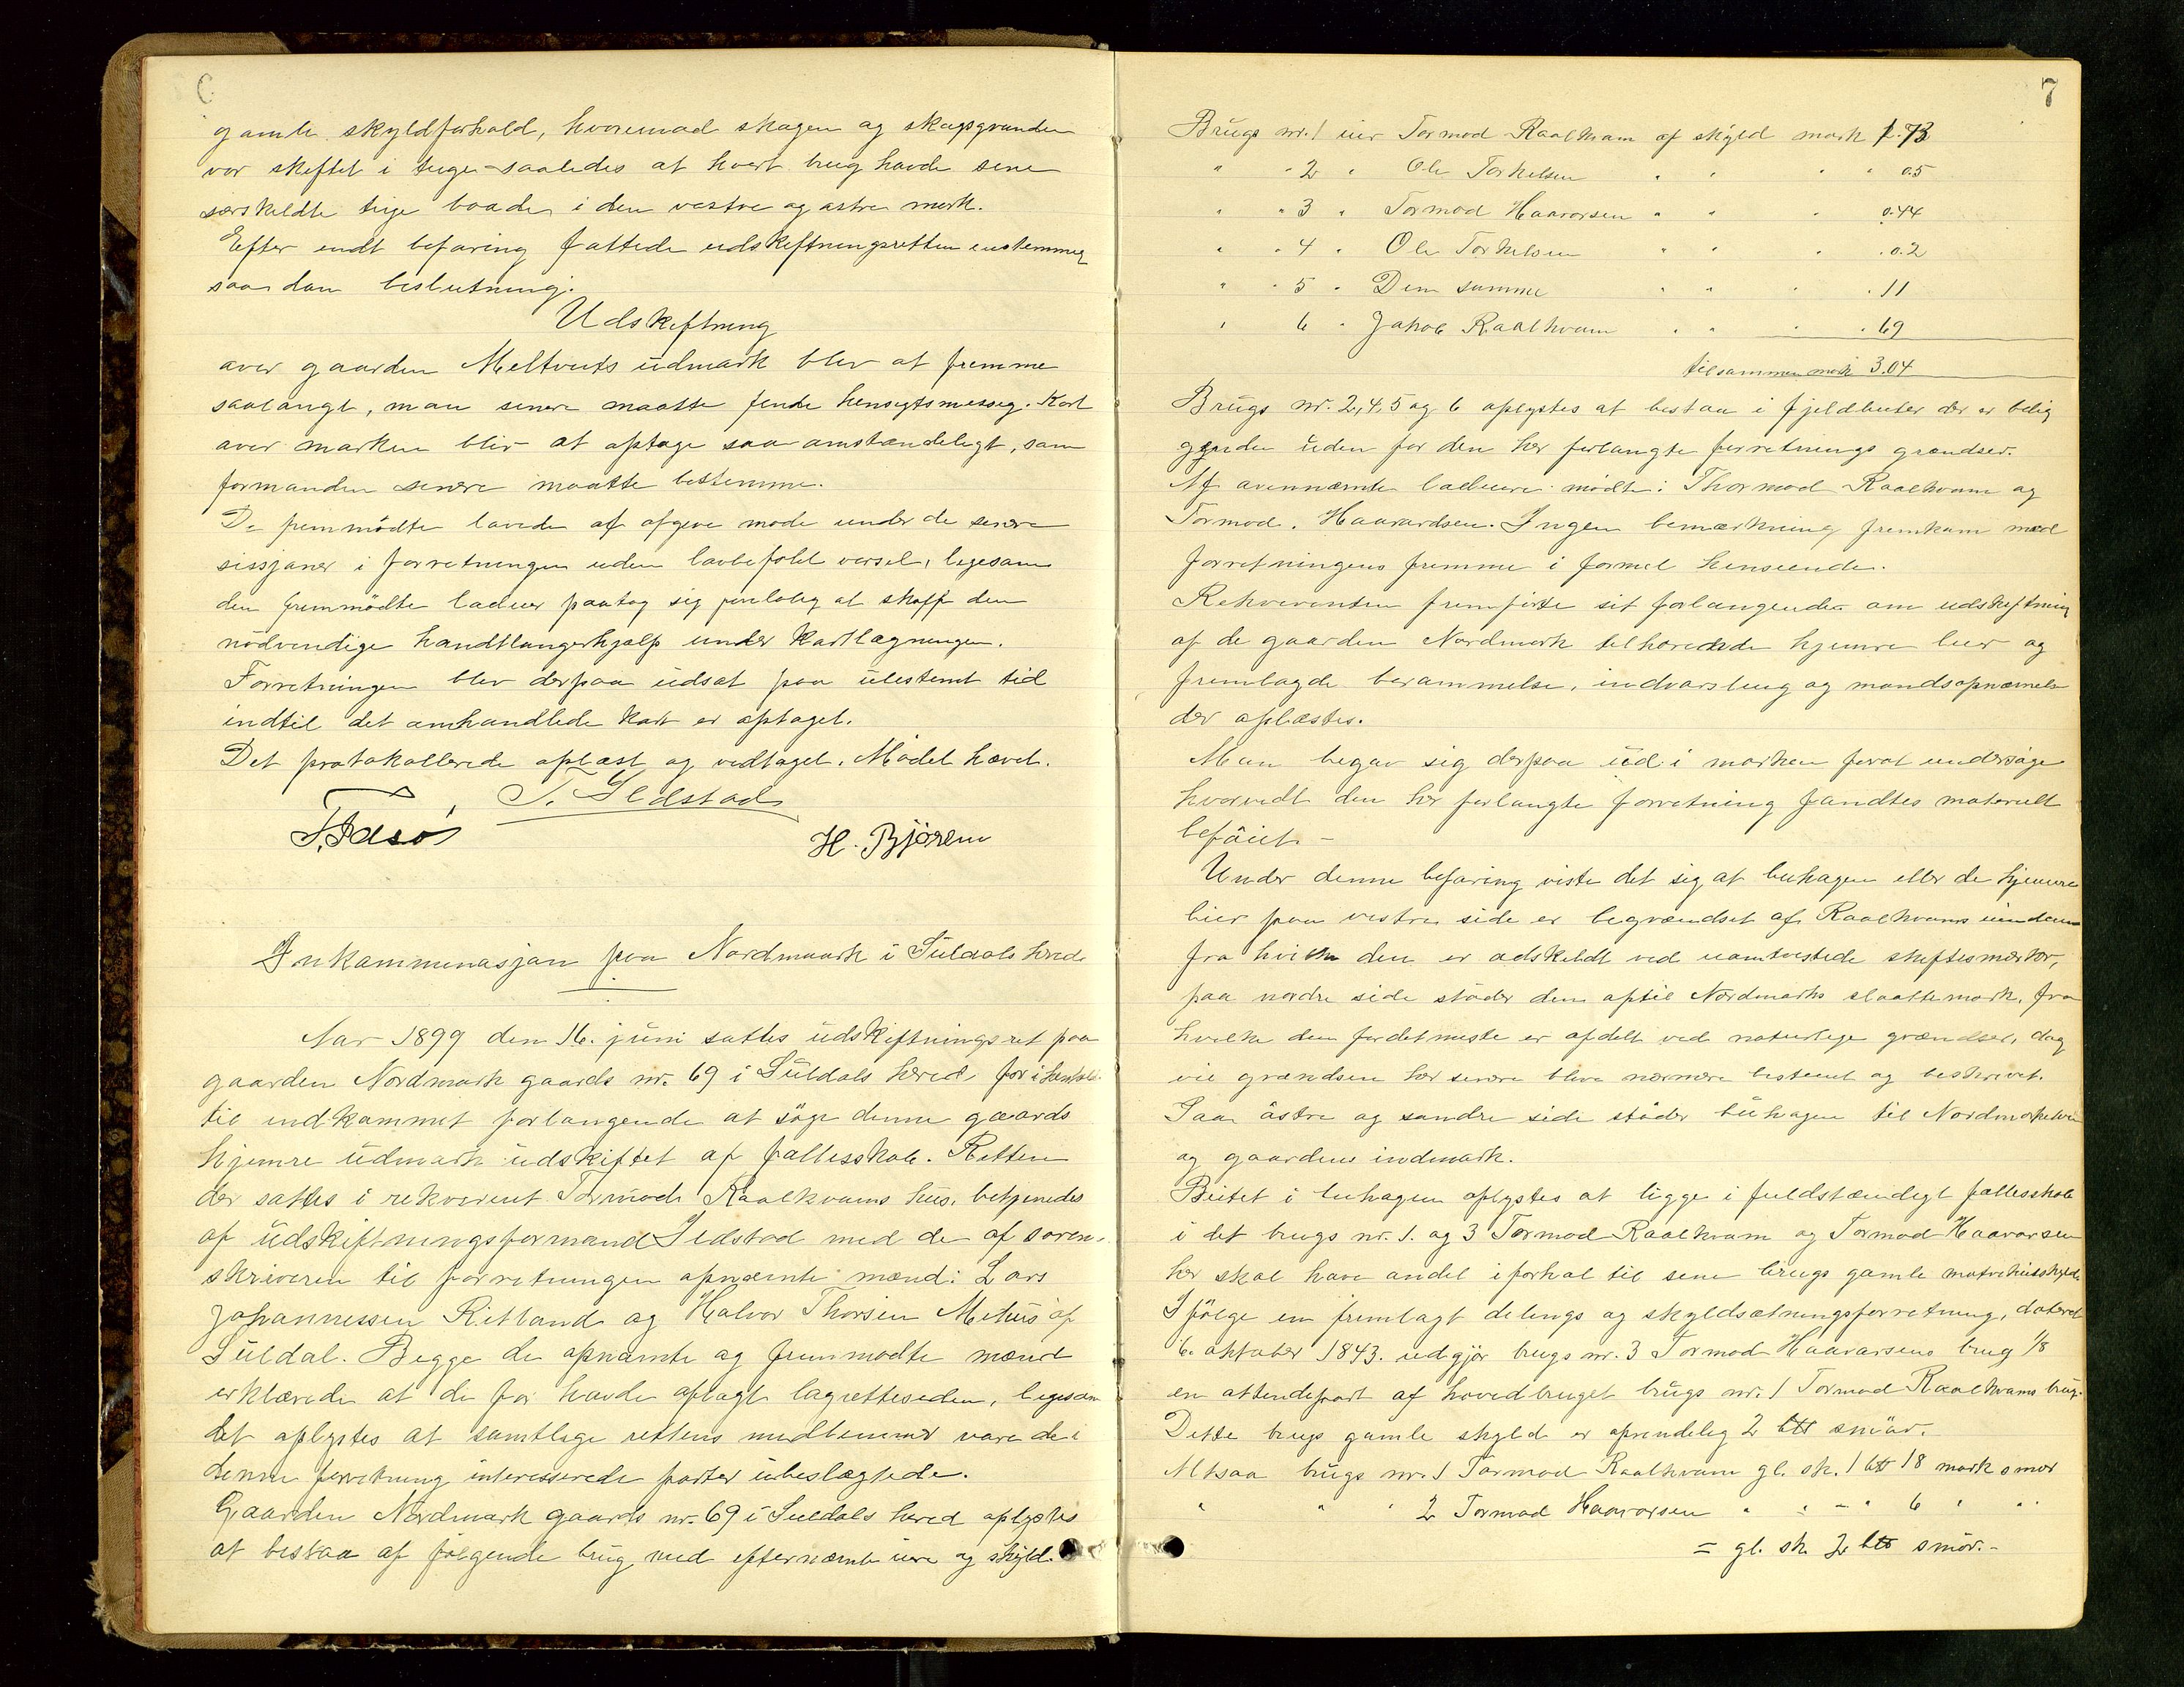 6
gamle skyldforhold, hvoremod skogen og skogsgrunden
var skeftet i teiger saaledes at hvert brug havde sine
særskeldte teige baade i den vestre og østre mork.
Efter endt befaring fattede udskeftningsretten enstemmig
saadan beslutning.
Udskeftning
over gaarden Meltveits udmark blev at fremme
saalangt, man senere maatte finde hensigtsmessig. Kart
over marken blir at optage saa omstændeligt, som
formanden senere maatte bestemme.
De fremmødte lovede at afgive møde under de senere
sissjoner i forretningen uden lovbefalet varsel, ligesom
den fremmødte lodeier paatog sig foreløbig at skaffe den
nødvendige handtlangerhjælp under kartlægningen.
Forretningen blev derpaa udsat paa ubestemt tid
indtil det omhandlede kart er optaget.
Det protokollerede oplæst og vedtaget. Mødet hævet.
S. Ildstad
H. Bjørem
Inkamminasjon paa Nordmark i Suldals hered
Aar 1899 den 16. juni sattes udskiftningsret paa
gaarden Nordmark gaards nr. 69 i Suldals hered for i henhold
til indkommet forlangende at søge denne gaards
hjemre udmark udskiftet af fællesskab. Retten
der sattes i rekvirent Tormod Raalkvams hus, betjenedes
af udskiftningsformand Ildstad med de af soren-
skriveren til forretningen opnæmte mænd: Lars
Johannessen Ritland og Halvor Thorsen Mehus af
Suldal. Begge de opnæmte og fremmødte mænd
erklærede at de før havde aflagt lagretteseden, ligesom
det oplystes at samtlige rettens medlemmer vare de i
denne forretning interesserede parter ubeslægtede.
Gaarden Nordmark gaards nr. 69 i Suldals hered oplystes
at bestaa af følgende brug med efternæmte eiere og skyld.
7
Brugs nr. 1 eier Tormod Raalkvam af skyld mark 1.73
" " 2 " Ole Torkelsen " " " " 0.5
" " 3 " Tormod Haavarsen " " " 0.44
" " 4 " Ole Torkelsen " " " .0.2
" " 5 " Den samme " " " .11
" 6 " Jakob Raalkvam " " " .69
tilsammen mark 3.04
Brugs nr. 2, 4, 5 og 6 oplystes at bestaa i fjeldbeiter der er belig
gende uden for den her forlangte forretnings grændser.
Af ovennæmte lodeiere mødte: Thormod Raalkvam og
Tormod. Haavardsen. Ingen bemærkning fremkom mod
forretningens fremme i formel henseende.
Rekvirenten fremførte sit forlangende om udskeftning
af de gaarden Nordmark tilhørende hjemre lier og
fremlagde berammelse, indvarsling og mandsopnæmelse
der oplæstes.
Man begav sig derpaa ud i marken forat undersøge
hvorvidt den her forlangte forretning fandtes materielt
beføiet. -
Under denne befaring viste det sig at buhagen eller de hjemre
lier paa vestre side er begrændset af Raalkvams eiendom
fra hvilken den er adskeldt ved uomtvistede skiftesmærker,
paa nordre side støder den optil Nordmarks slaattemark, fra
hvilke den fordetmeste er afdelt ved naturlige grændser, dog
vil grændsen her senere blive nærmere bestemt og beskrevet.
Paa østre og søndre side støder buhagen til Nordmarkelven
og gaardens indmark.
Beitet i buhagen oplystes at ligge i fuldstændigt fællesskab
i det brugs nr. 1. og 3 Tormod Raalkvam og Tormod Haavarsen
her skal have andel i forhal til sine brugs gamle matrikulskyld.
Ifølge en fremlagt delings og skyldsætningsforretning, dateret
6. oktober 1843. udgjør brugs nr. 3 Tormod Haavarsens brug 1/8
en ottendepart af hovedbruget brugs nr. 1 Tormod Raalkvams brug.
Dette brugs gamle skyld er oprindelig 2 btt smør.
Altsaa brugs nr. 1 Tormod Raalkvam gl. sk. 1 btt 18 mark smør
" " " 2 Tormod Haavarsen " " - " 6 " "
= gl. sk. 2 btt smør. -